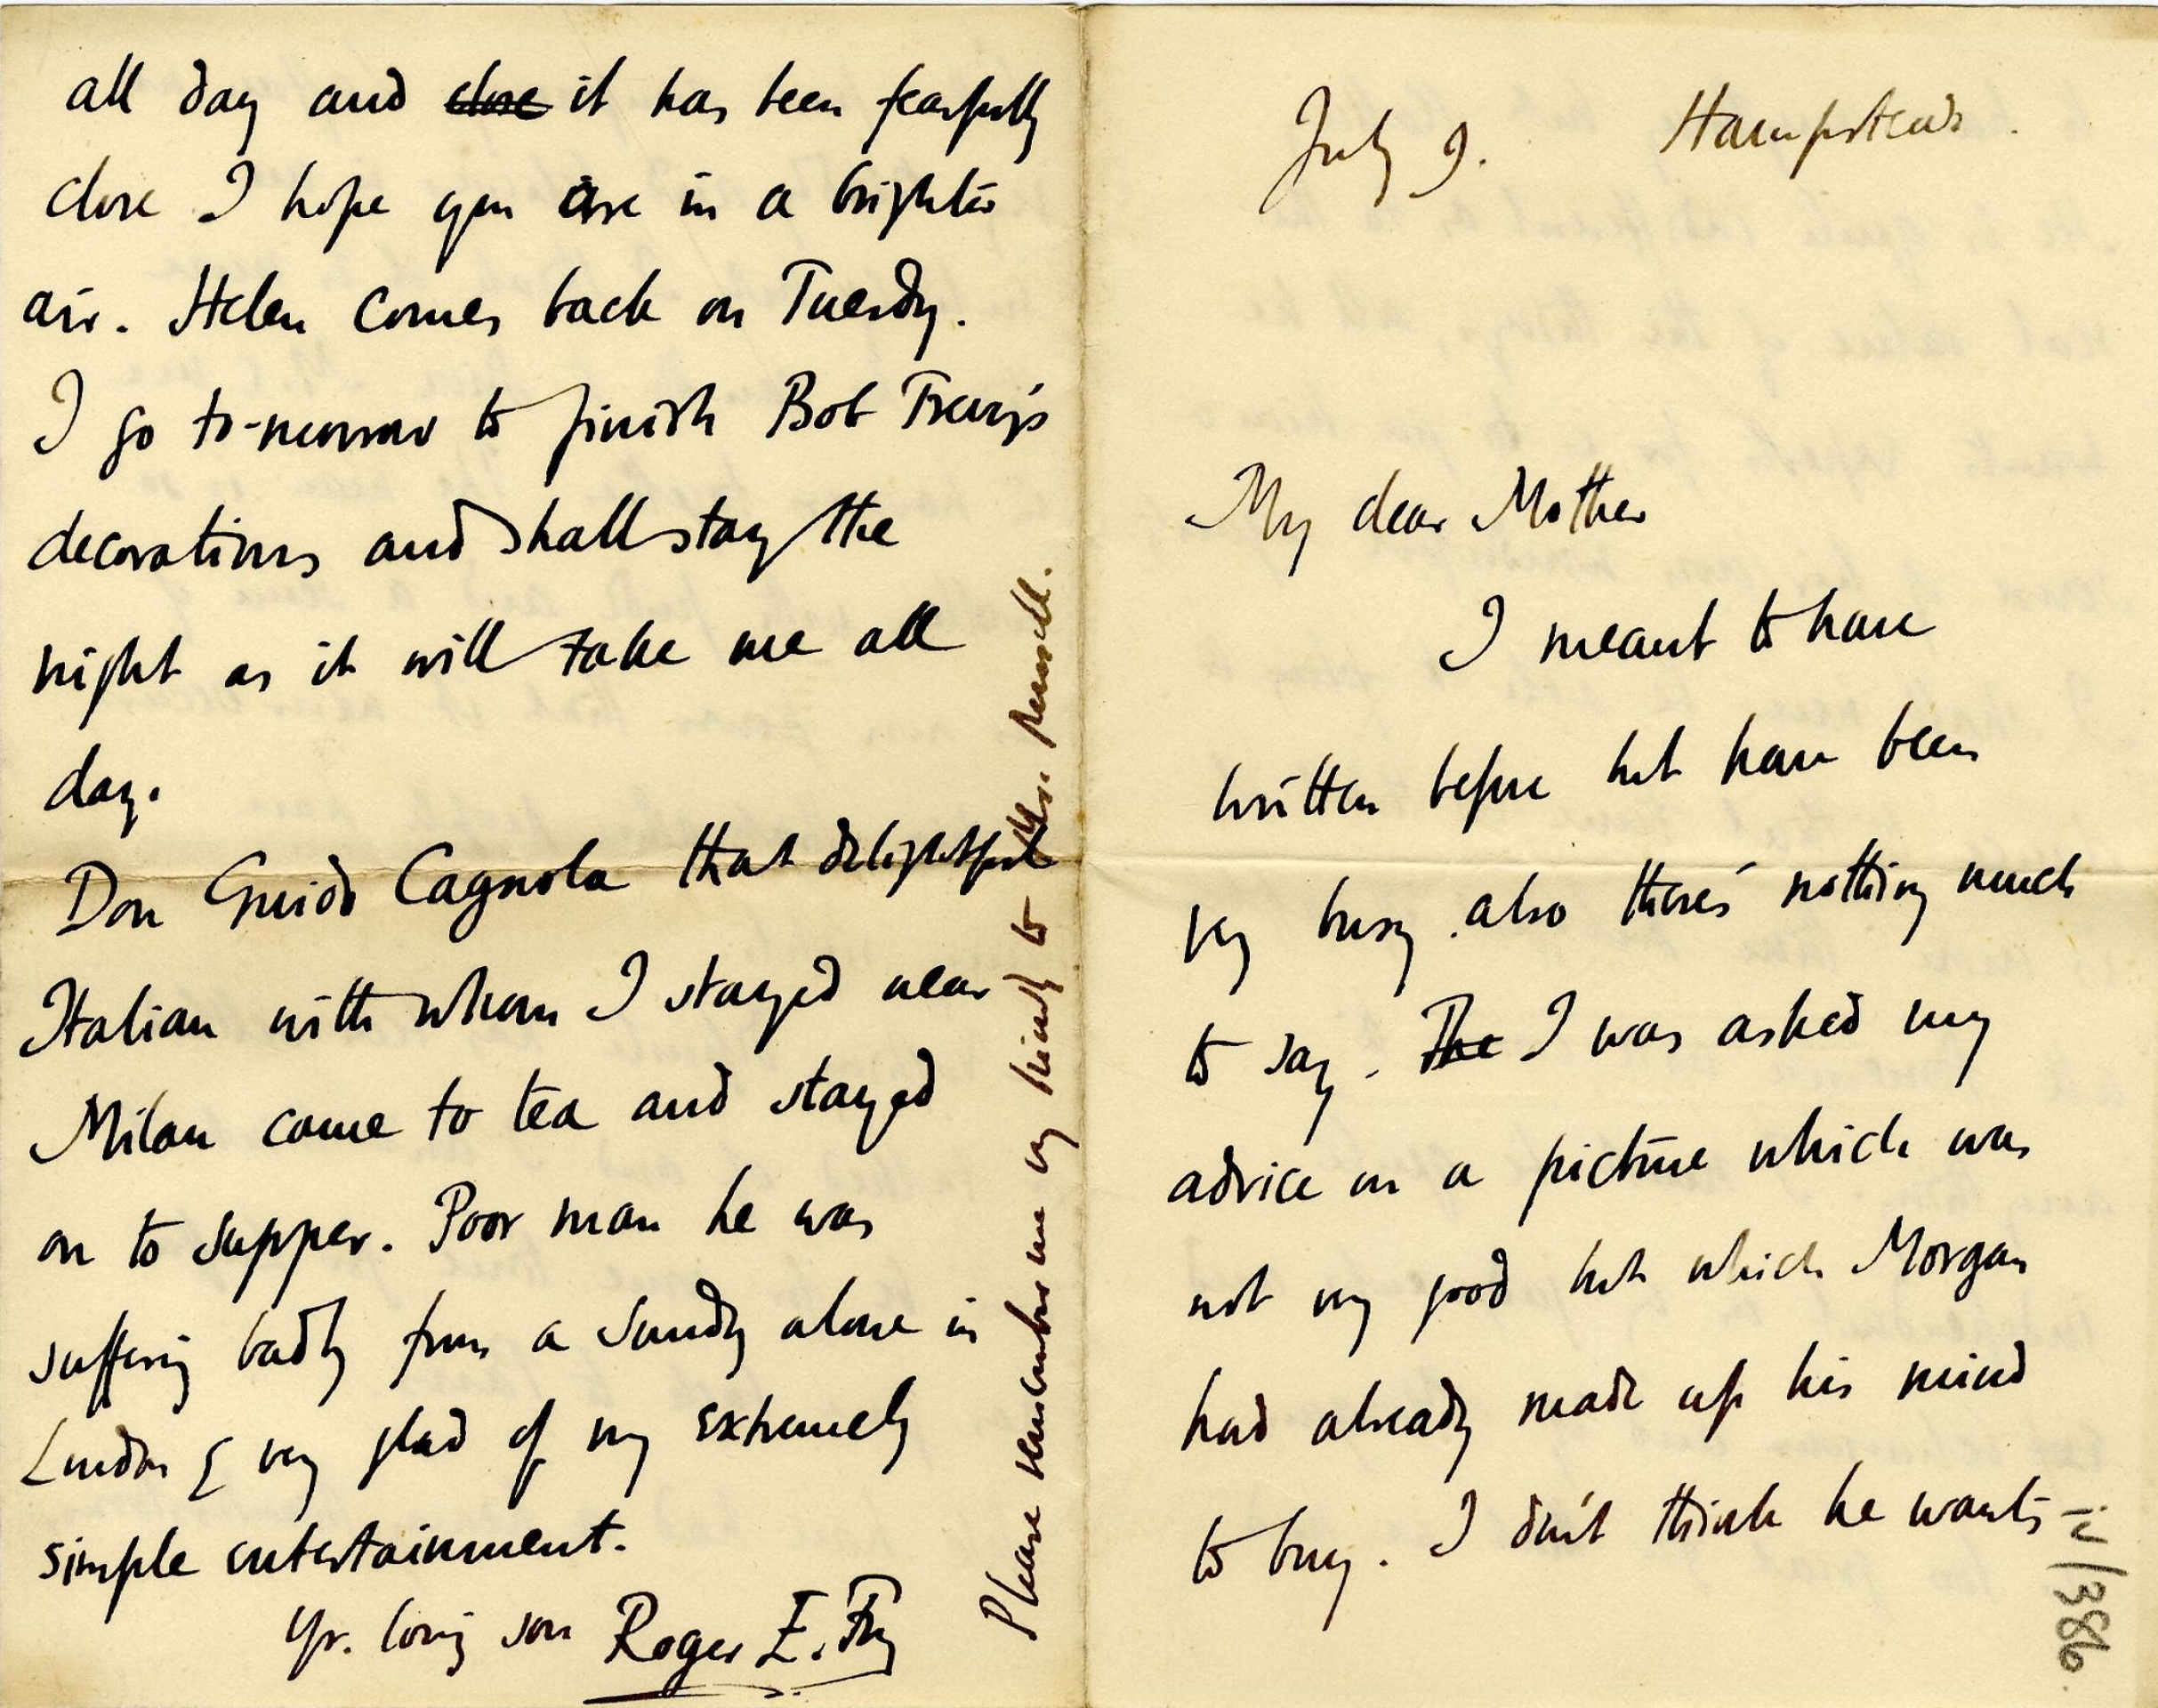 all day and close it has been fearfully
close I hope you are in a brighter
air. Helen comes back on Tuesday.
I go to-morrow to finish Bob Trevy's
decorations and shall stay the
night as it will take me all
day.
Don Guido Cagnola that delightful
Italian with whom I stayed near
Milan came to tea and stayed
on to supper. Poor man he was
suffering badly from a Sunday alone in
London & very glad of my extremely
simple entertainment.
Yr. loving son Roger E. Fry
Please remember me vy kindly to Mrs.
July 9. Hampstead.
My dear Mother
I meant to have
written before but have been
vy busy. also there's nothing much
to say. The I was asked my
advice on a picture which was
not vy good but which Morgan
had already made up his mind
to buy. I don't think he wants
iv/386